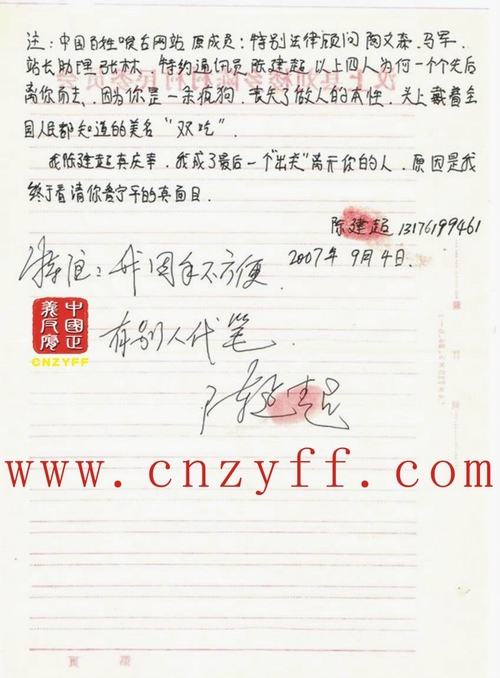 注：中国百姓喉舌网站原成员：特别法律顾问 陶文泰、马军、
站长助理 张林 特约通讯员 陈建超 以上四人为何一个个先后
离你而去，因为你是一条疯狗，丧失了做人的本性，头上戴着全
国人民都知道的美名"双吃"。
我陈建超真庆幸，我成了最后一个"出夹"离开你的人，原因是我
终于看清你 宁平的真面目。
陈建超 13176199461
2007年9月4日.
特注：我因手不方便.
有别人代笔.
陈建超
中國正
義反腐
CNZYFF
www.cnzyff.com